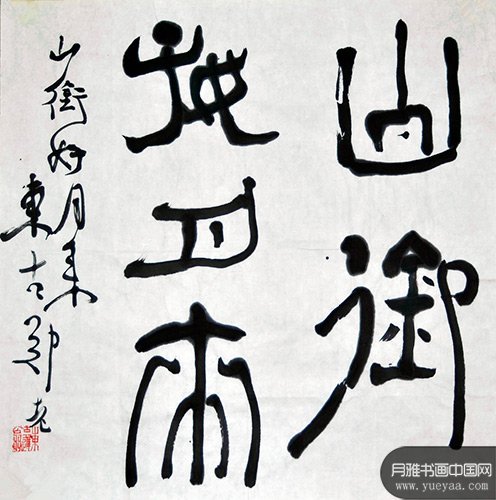 山銜
好月來
山銜好月来
東古
月雅书画中国网
www.yueyaa.com